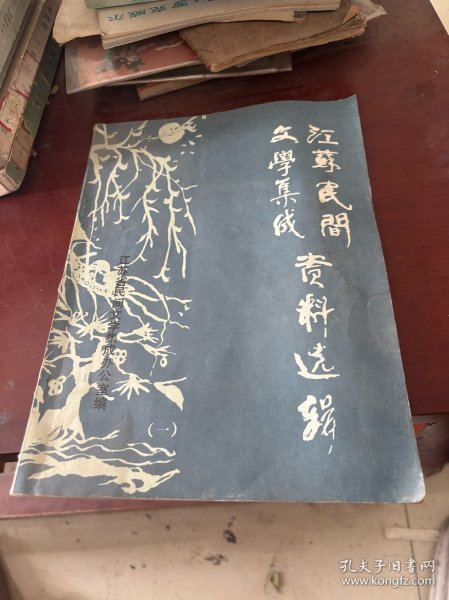 江蘇民間
文學集成
资料选辑
(一)
江苏省民间文学集成办公室编
罗克威尔
孔夫子旧书网
www.kongfz.com